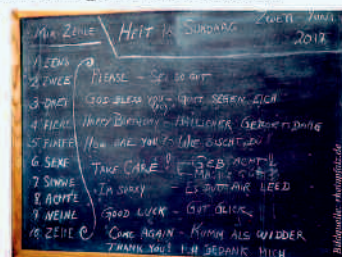 MIR ZEHLE
HEIT IS SUNDAAG
ZWETT YUNI
2017
1 EENS
2 ZWEE
3 DREI
4 FIERE
5 FINFE
6 SEXE
7 SIWWE
8 ACHTE
9 NEINE
10 ZEHE
PLEASE - SEI SO GUT
GOD BLESS YOU - GOTT SEGEN EICH
HAPPY BIRTHDAY - HALLICHER GEBORTSDAAG
HOW ARE YOU? - WIE BISCHT DU?
TAKE CARE! - GEB ACHT!!
I'M SORRY - ES DUT MIR LEED
GOOD LUCK - GUT GLICK
COME AGAIN - KUMM ALS WIDDER
THANK YOU! ICH BEDANK MICH